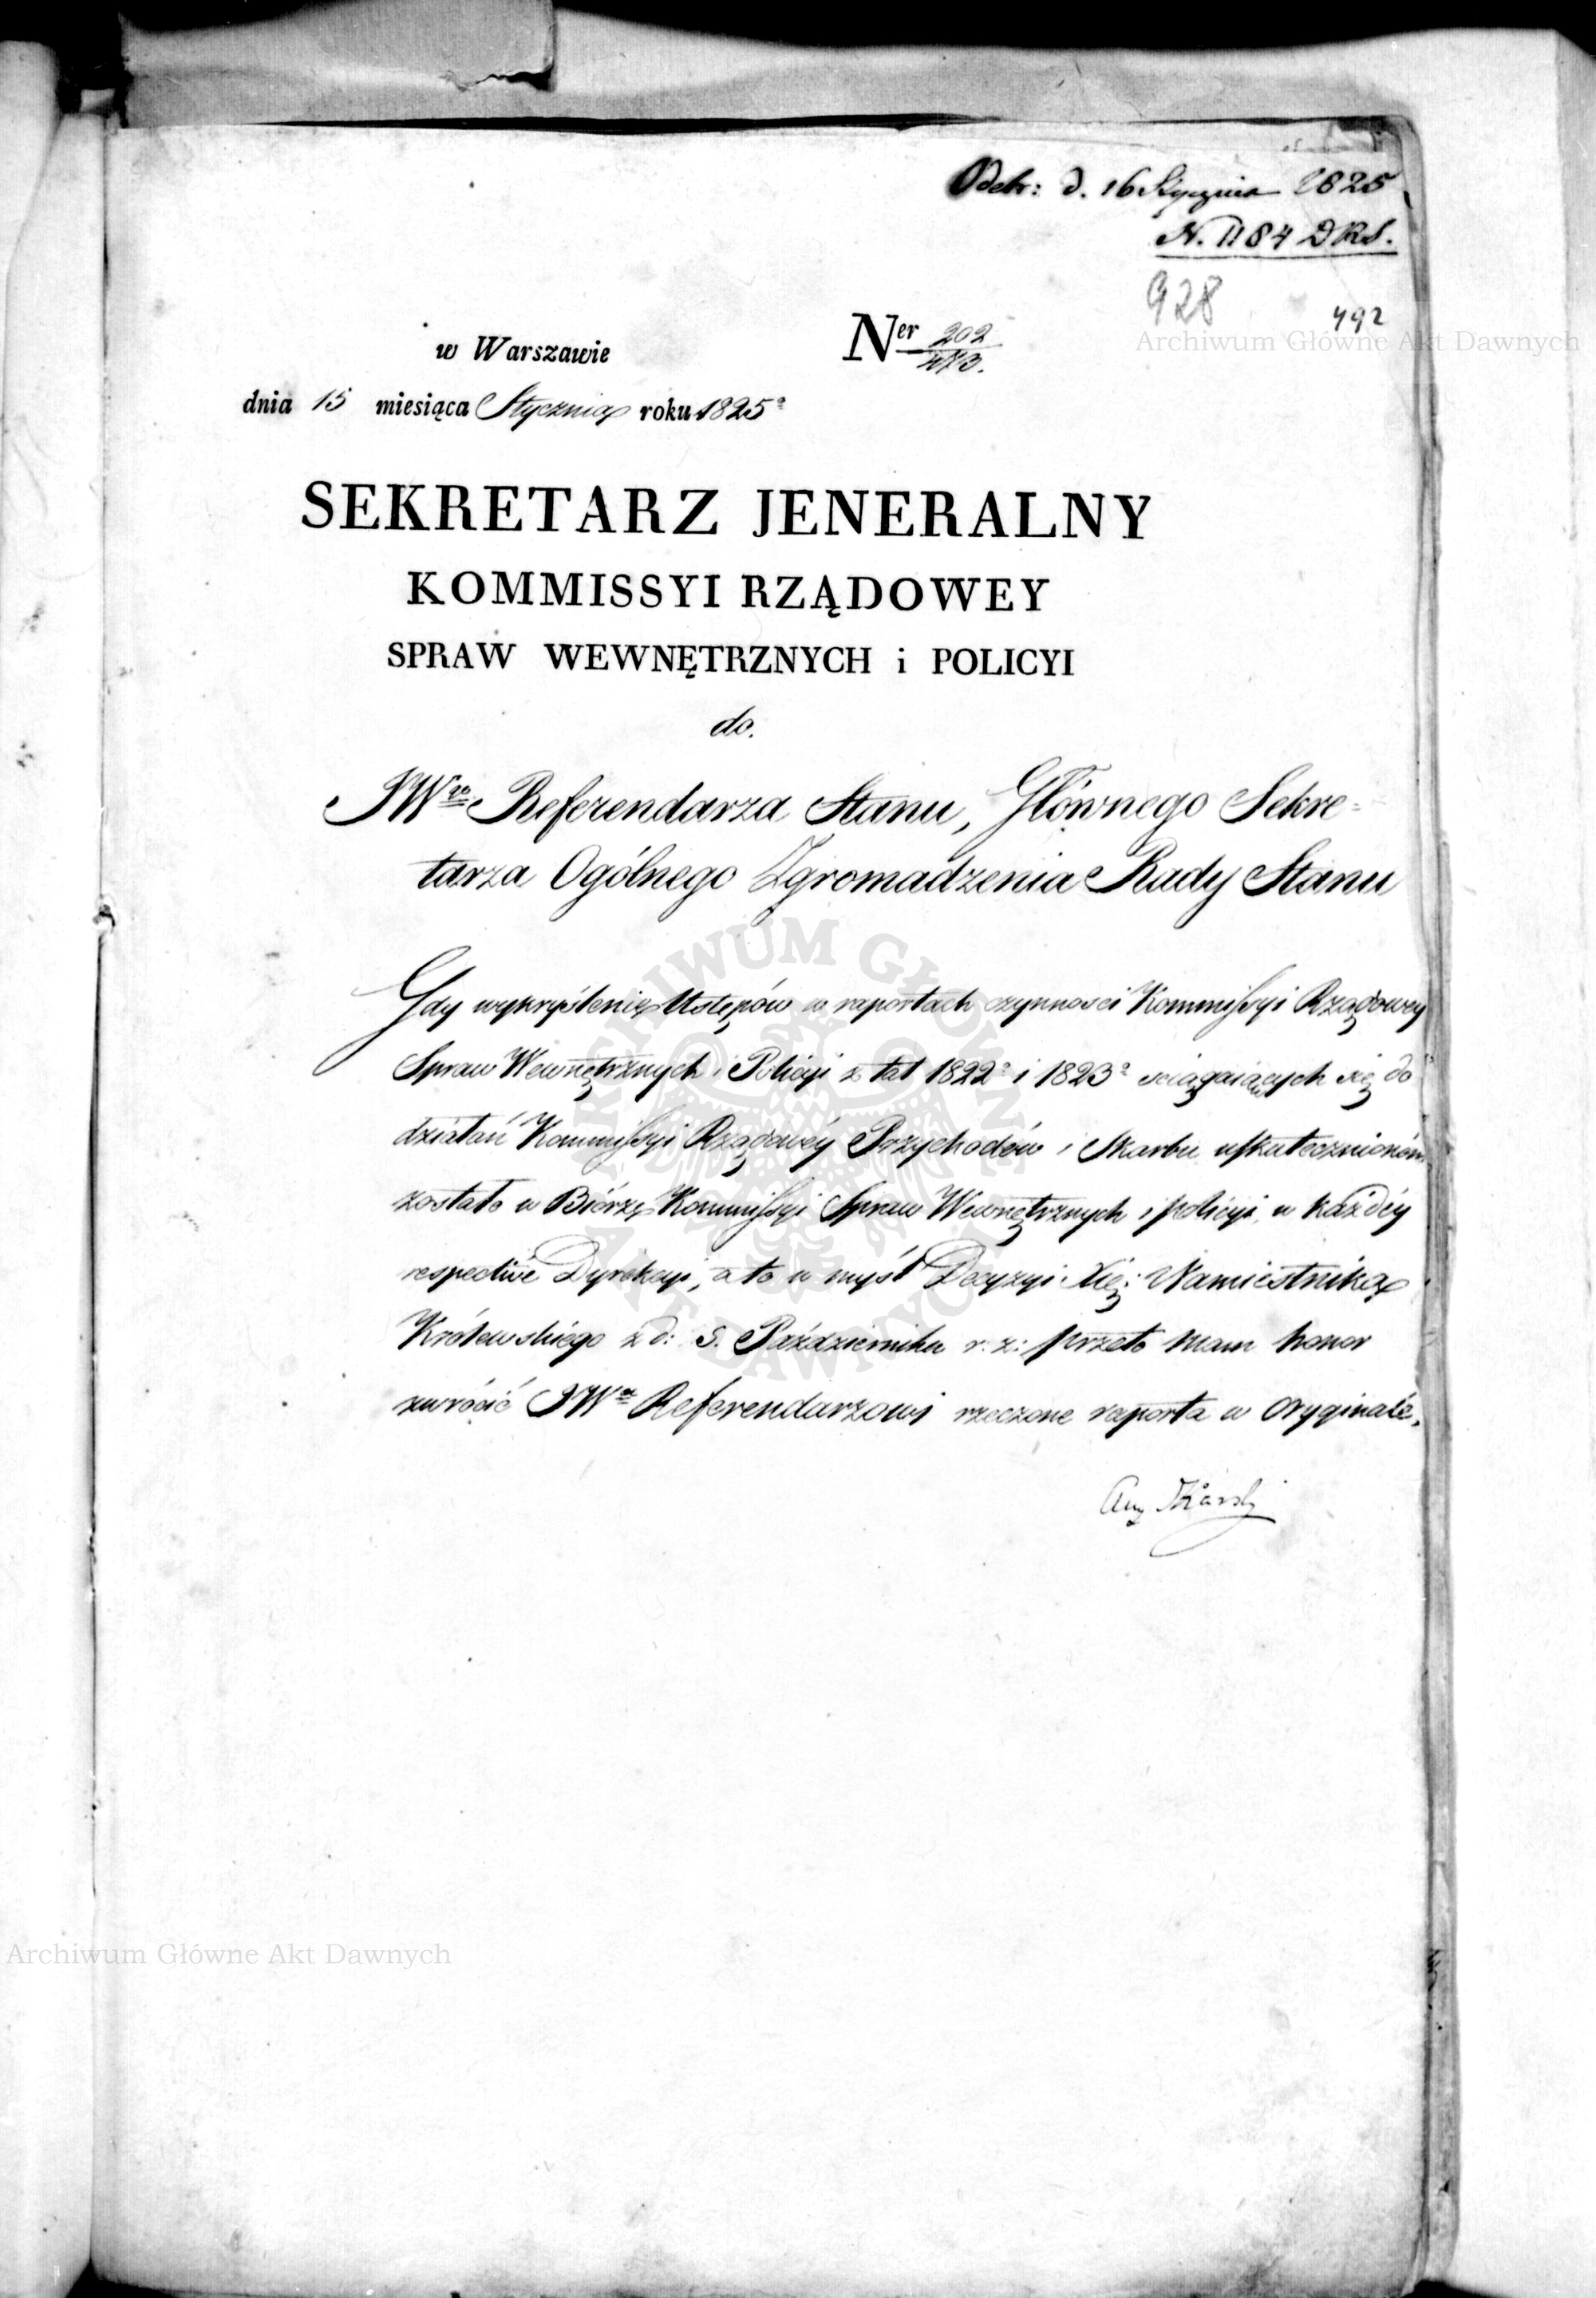 Odebr: d. 16 Stycznia 1825
N. 1184 DRS.
928
492
w Warszawie
Ner 202/473.
dnia 15 miesiąca Stycznia roku 1825º
SEKRETARZ JENERALNY
KOMMISSYI RZĄDOWEY
SPRAW WEWNĘTRZNYCH i POLICYI
do.
JWgo Referendarza Stanu, Głównego Sekre=
tarza Ogólnego Zgromadzenia Rady Stanu
Gdy wykryślenie Ustępów w raportach czynności Kommissyi Rządowey
Spraw Wewnętrznych i Policyi z lat 1822º i 1823º sciągaiących się do
działań Kommissyi Rządowéy Przychodów i Skarbu uskutecznioném
zostało w Biórze Kommissyi Spraw Wewnętrznych i Policyi, w każdéy
respective Dyrekcyi, a to w myśl Decyzyi Xię: Namiestnika
Królewskiégo z d: 5. Października r. z: przeto mam honor
zwrócić JWu Referendarzowi rzeczone raporta w oryginale.
Aug Karski
Archiwum Główne Akt Dawnych
ARCHIWUM GŁÓWNE AKT DAWNYCH
Archiwum Główne Akt Dawnych